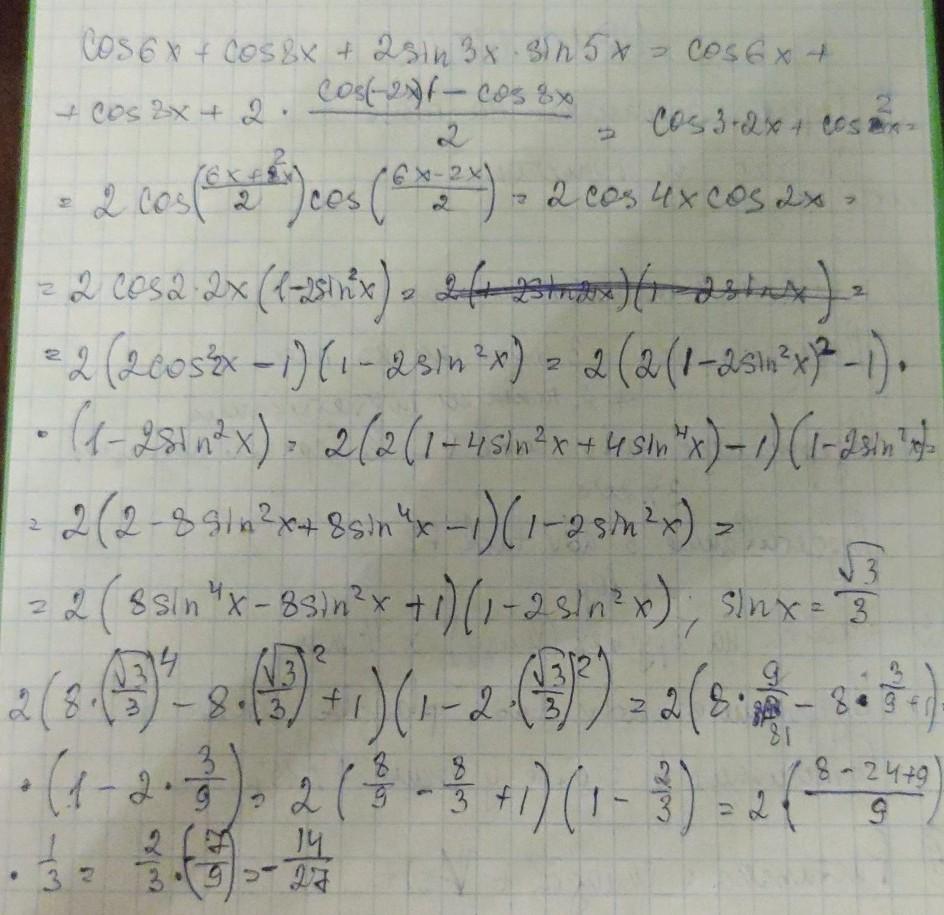 cos6x + cos8x + 2sin3x·sin5x = cos6x +
+ cos8x + 2 · (cos(-2x) - cos8x)/2 = cos3·2x + cos2x =
= 2cos((6x+2x)/2)cos((6x-2x)/2) = 2cos4xcos2x =
= 2cos2·2x(1-2sin²x) = =
= 2(2cos²2x - 1)(1 - 2sin²x) = 2(2(1-2sin²x)² - 1) ·
· (1-2sin²x) = 2(2(1-4sin²x + 4sin⁴x) - 1)(1-2sin²x) =
= 2(2 - 8sin²x + 8sin⁴x - 1)(1 - 2sin²x) =
= 2(8sin⁴x - 8sin²x + 1)(1 - 2sin²x); sinx = √3/3
2(8·(√3/3)⁴ - 8·(√3/3)² + 1)(1 - 2·(√3/3)²) = 2(8·9/81 - 8·3/9 + 1)·
· (1 - 2·3/9) = 2(8/9 - 8/3 + 1)(1 - 2/3) = 2·((8-24+9)/9)
· 1/3 = 2/3·(-7/9) = -14/27